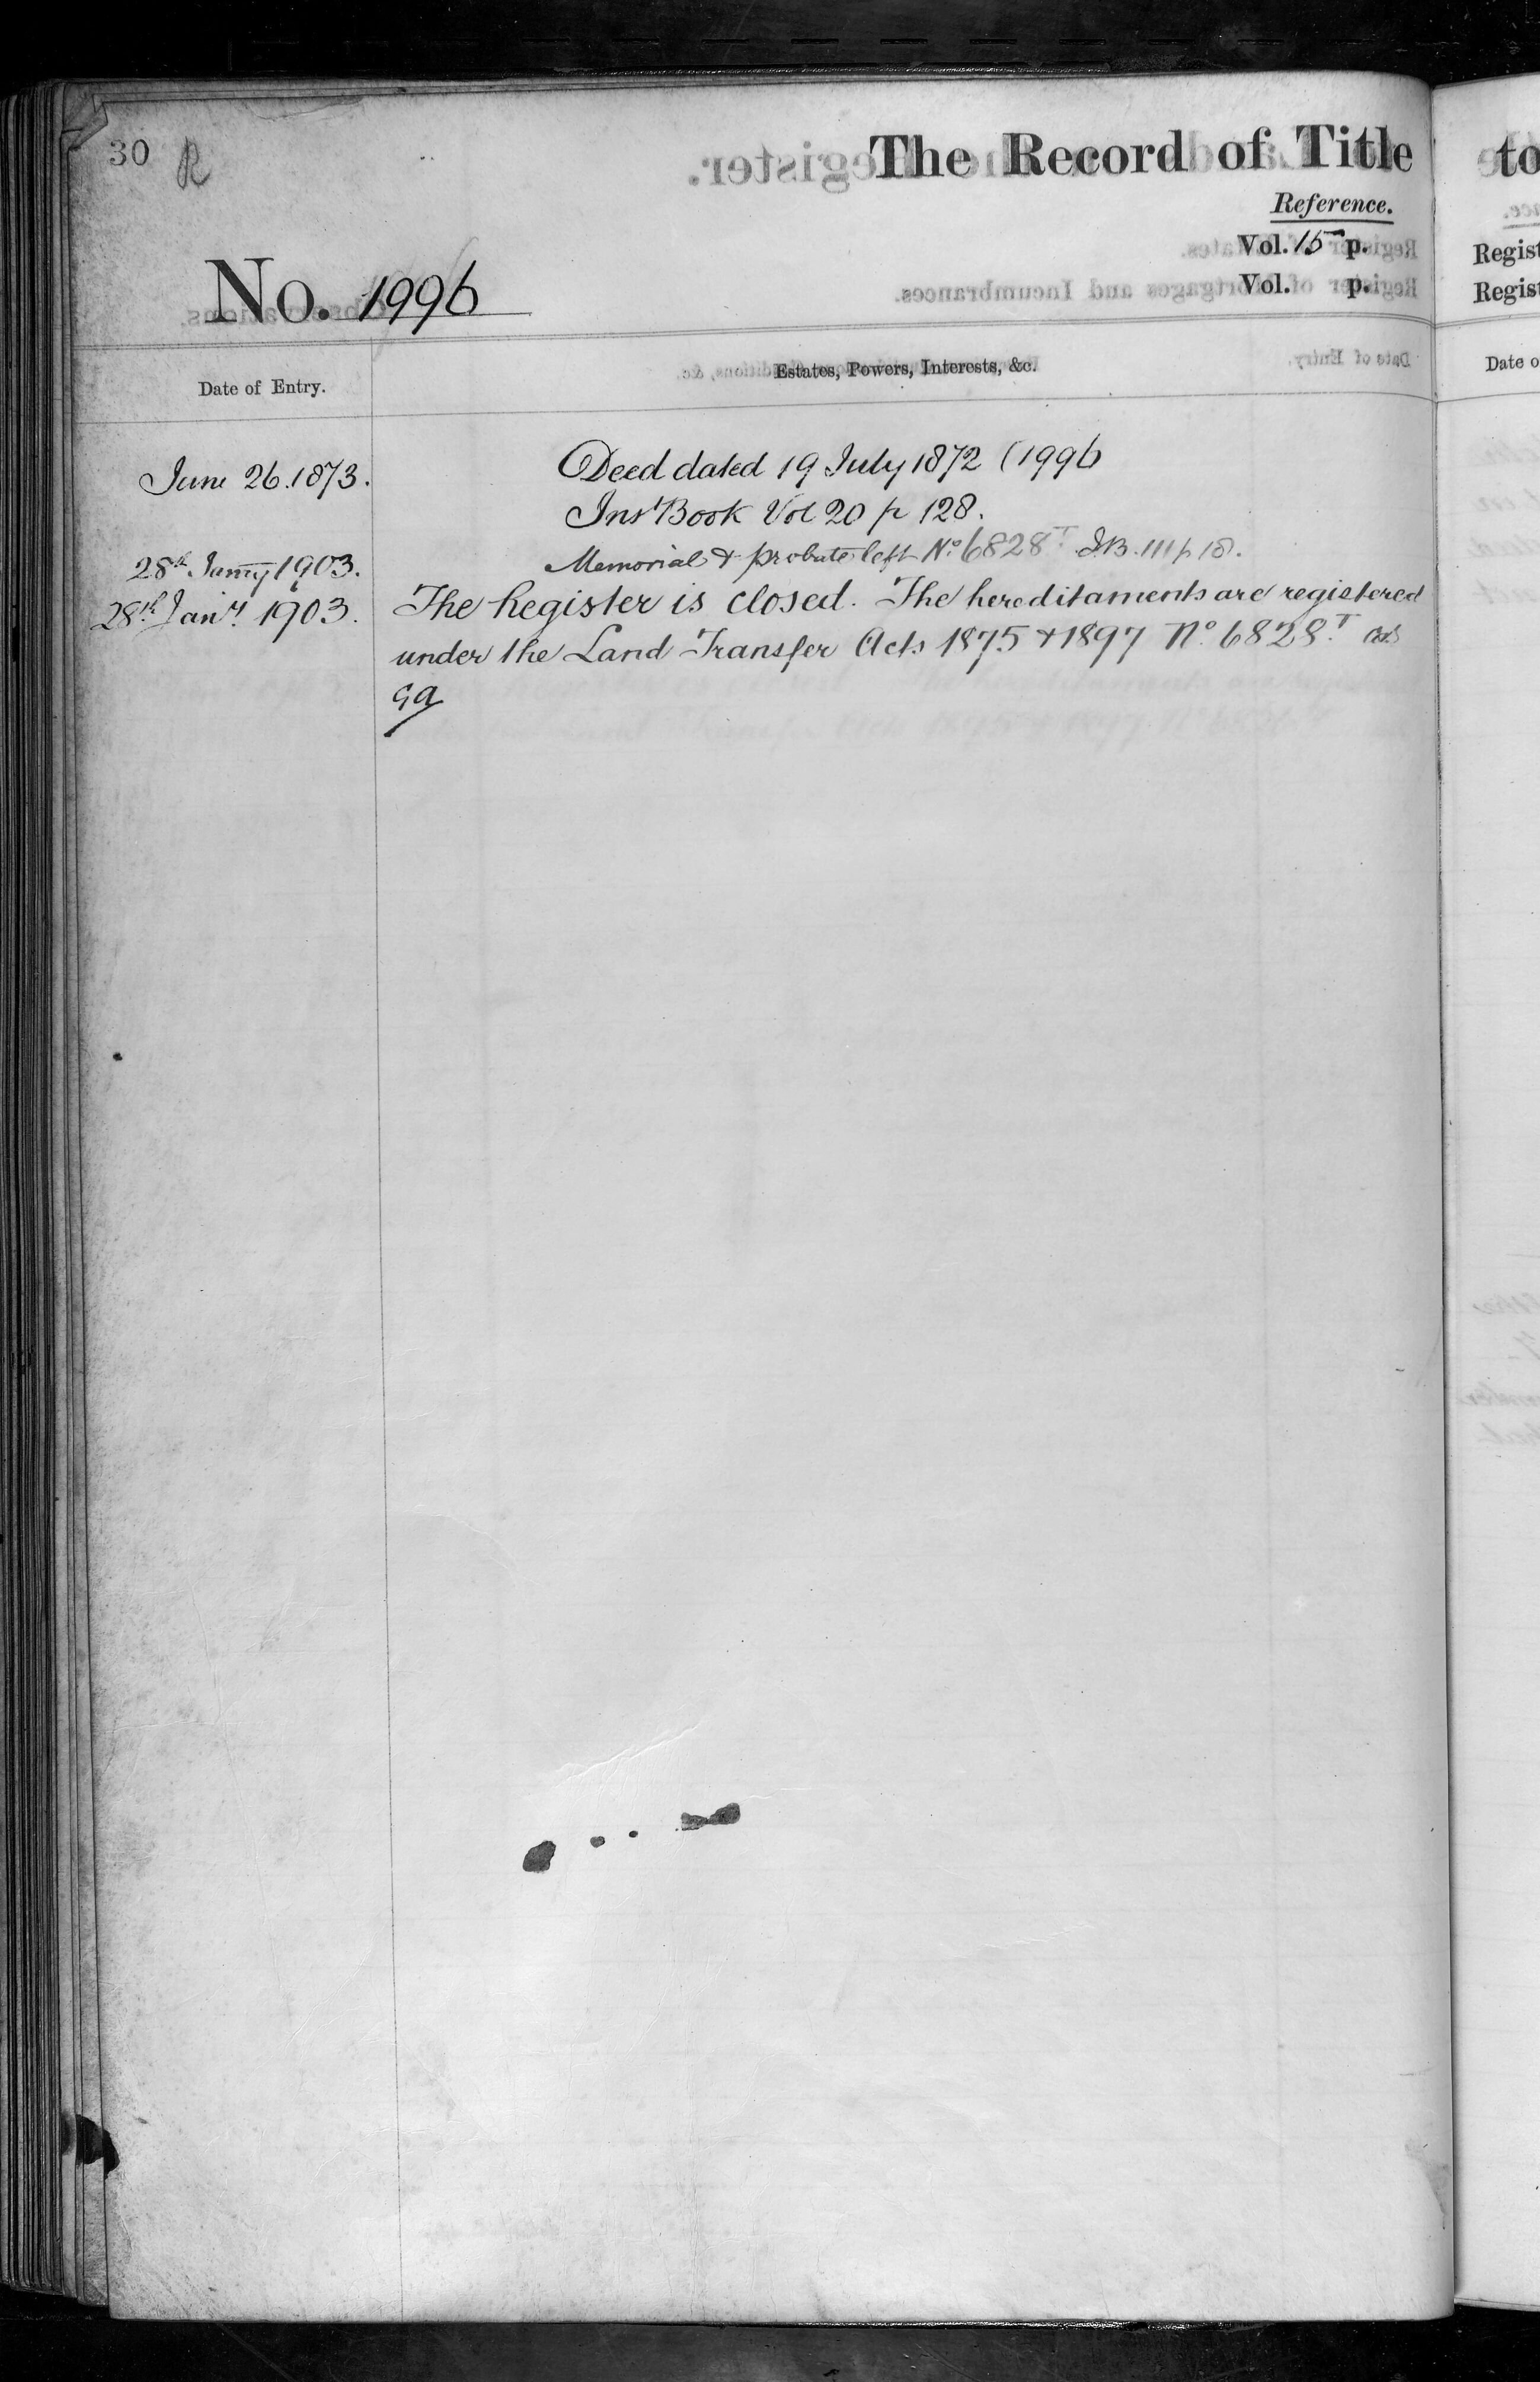 30 R
The Record of Title
Reference.
Vol. 15 p.
Vol. p.
No. 1996
Date of Entry.
Estates, Powers, Interests, &c.
June 26. 1873.
Deed dated 19 July 1872 (1996
Inst Book Vol 20 p 128.
28th Janry 1903.
Memorial & probate left No. 6828T I.B. 111 p 18.
28th Jany. 1903.
The Register is closed. The hereditaments are registered
under the Land Transfer Acts 1875 & 1897 No. 6828T
to
Regist
Regist
Date o